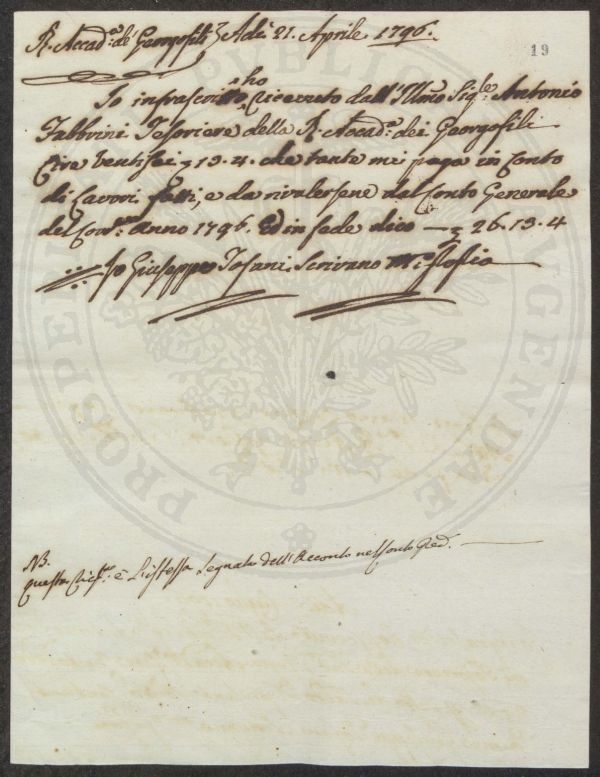 R. Accad.ª de' Georgofili Adì 21. Aprile 1796.
19
Io infrascritto ho ricevuto dall'Illmo Sig.re Antonio
Fabbrini Tesoriere della R. Accad.ª dei Georgofili
Lire ventisei 13.4. che tante mi paga in Conto
di Lavori fatti, e da rivalersene del Conto Generale
del Cor.te anno 1796. Ed in fede dico — 26.13.4
Io Giuseppe Tofani Scrivano
NB.
questa è l'istessa segnata dell'Acconto nel Conto Red.
PROSPERITATI PUBLICAE AUGENDAE